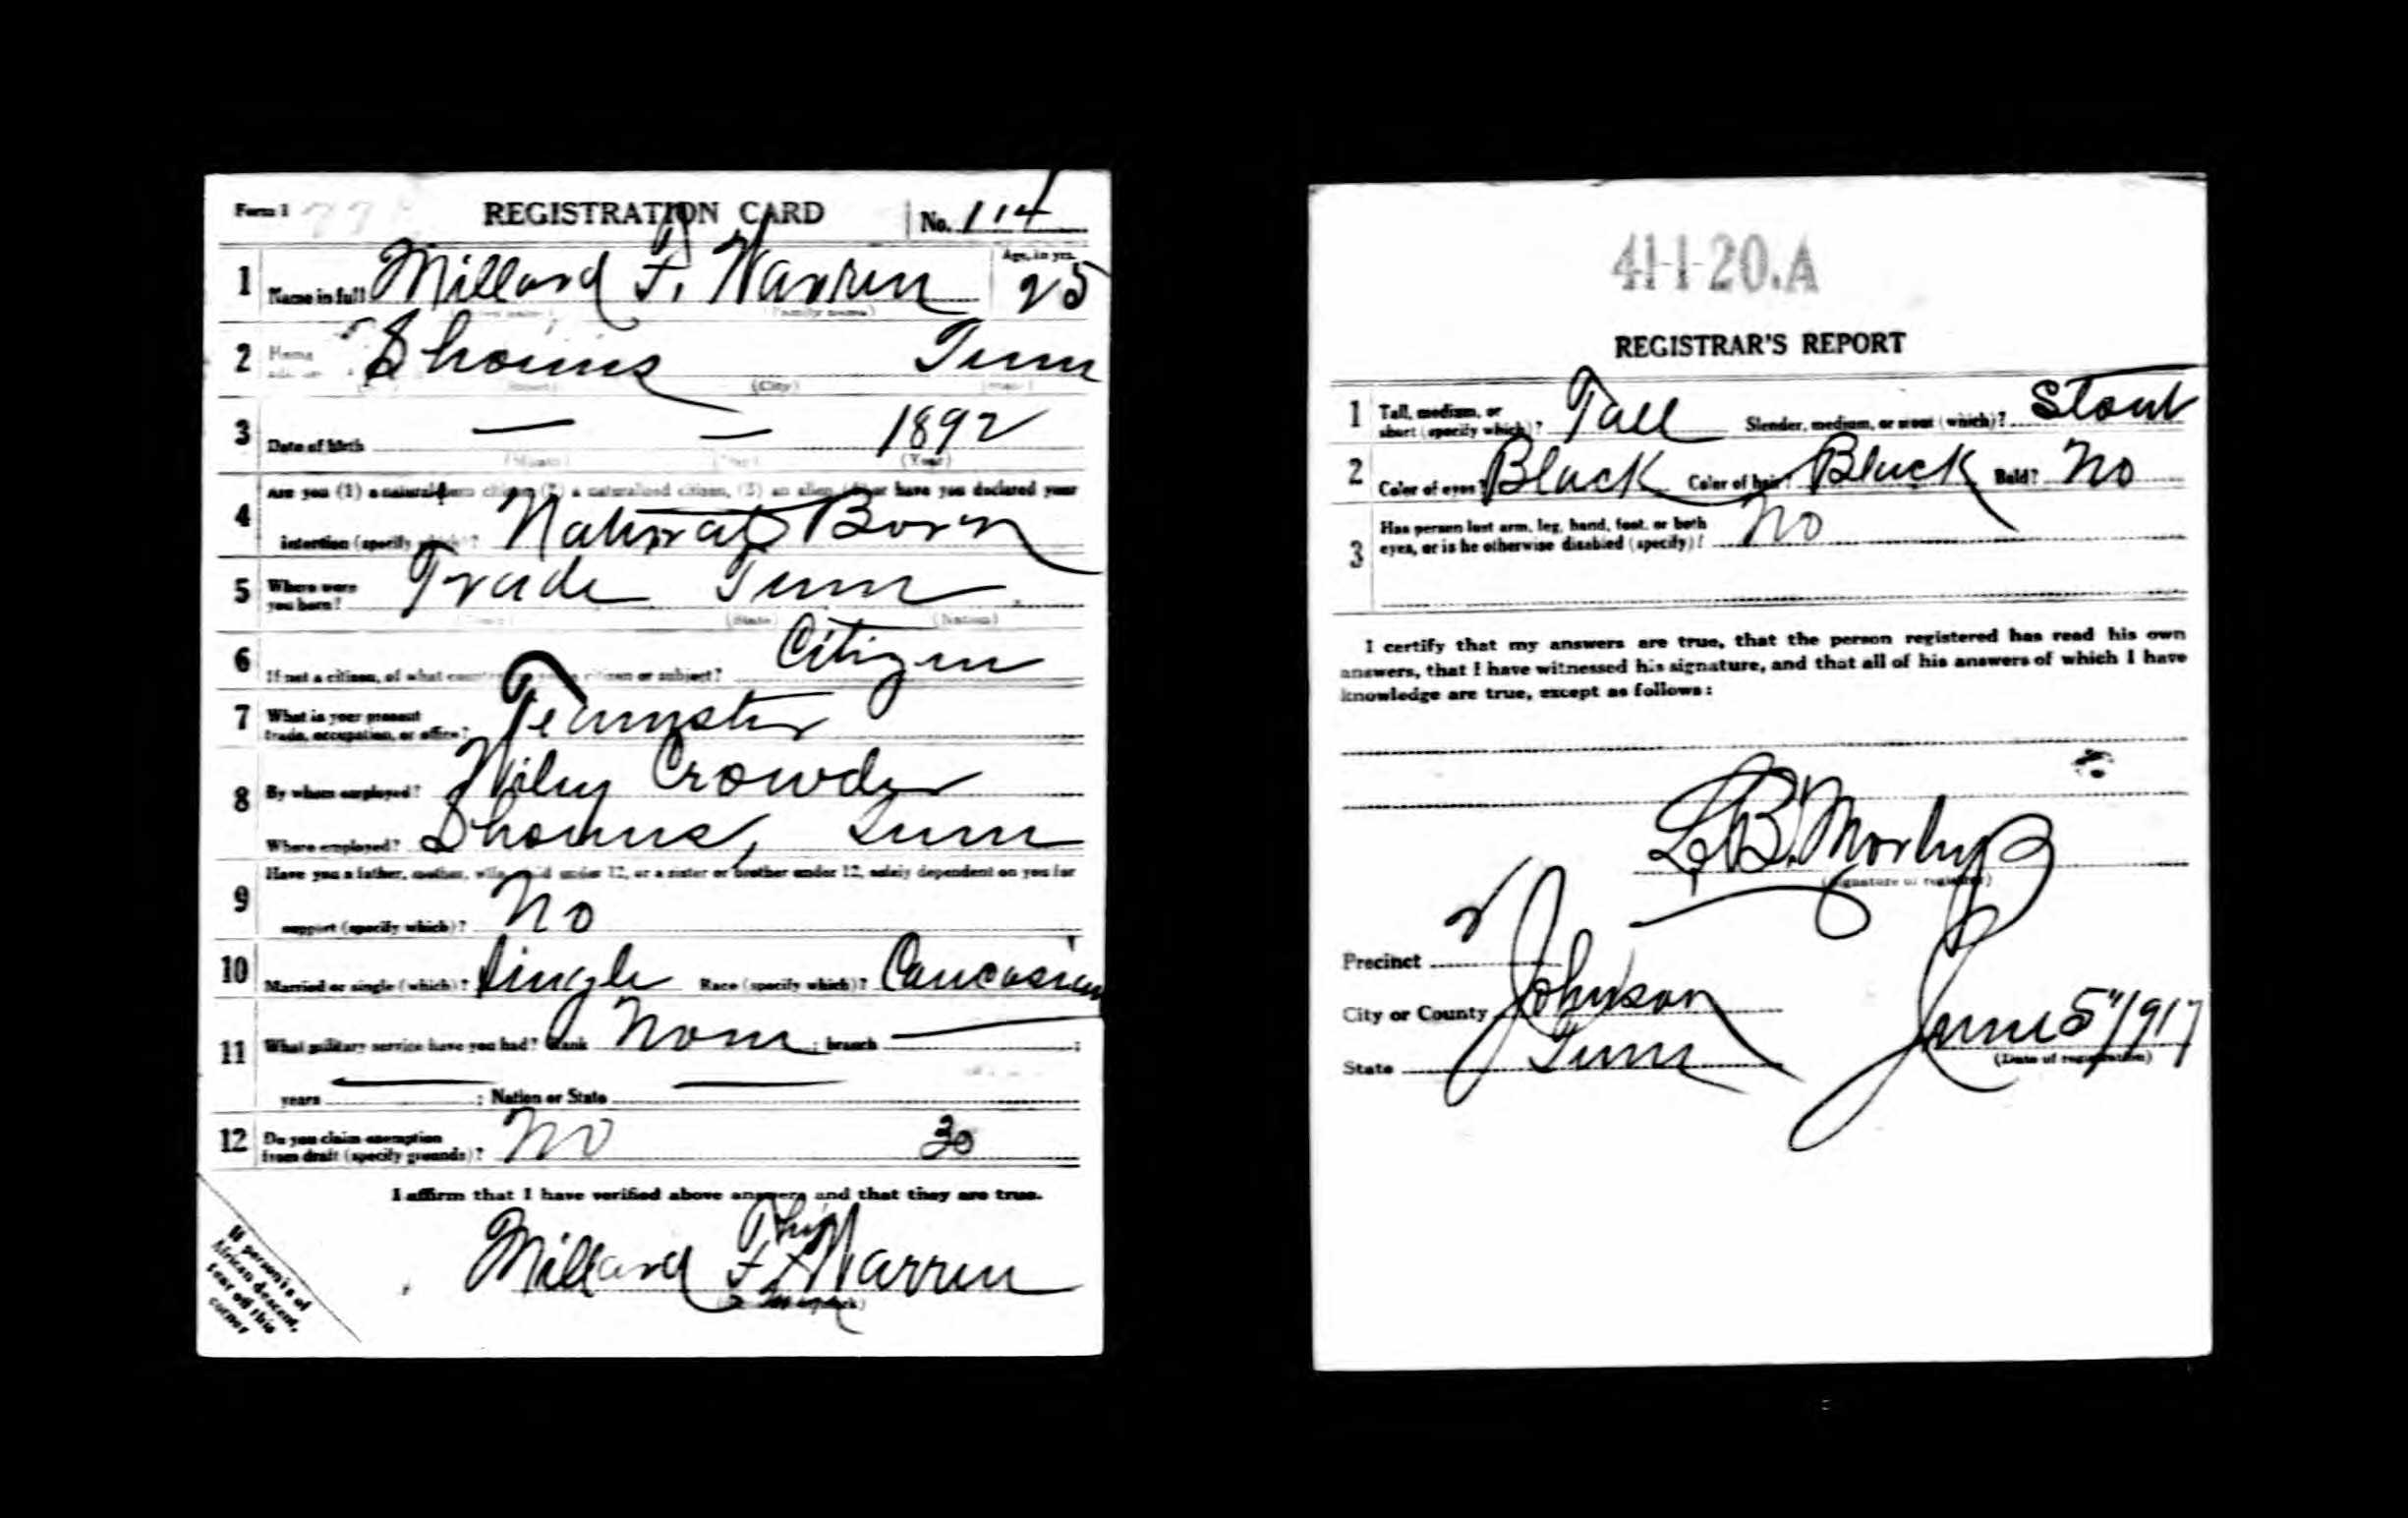 Form 1 REGISTRATION CARD No. 114
1 Name in full Millard F. Warren Age, in yrs. 25
(Family name)
2 Home Shouns Tenn
(Street) (City) (State)
3 Date of birth — — 1892
(Month) (Day) (Year)
4 Are you (1) a natural born citizen, (2) a naturalized citizen, (3) an alien, (4) or have you declared your
intention (specify which)? Natural Born
5 Where were you born? Trade Tenn
(Town) (State) (Nation)
6 If not a citizen, of what country are you a citizen or subject? Citizen
7 What is your present trade, occupation, or office? Teamster
8 By whom employed? Wiley Crowder
Where employed? Shouns, Tenn
9 Have you a father, mother, wife, child under 12, or a sister or brother under 12, solely dependent on you for
support (specify which)? No
10 Married or single (which)? Single Race (specify which)? Caucasian
11 What military service have you had? Rank None ; branch — ;
years — ; Nation or State —
12 Do you claim exemption from draft (specify grounds)? No 30
I affirm that I have verified above answers and that they are true.
his
Millard F. X Warren
mark
If person is of
African descent,
tear off this
corner
41-1-20.A
REGISTRAR'S REPORT
1 Tall, medium, or short (specify which)? Tall Slender, medium, or stout (which)? Stout
2 Color of eyes? Black Color of hair? Black Bald? No
3 Has person lost arm, leg, hand, foot, or both
eyes, or is he otherwise disabled (specify)? No
I certify that my answers are true, that the person registered has read his own
answers, that I have witnessed his signature, and that all of his answers of which I have
knowledge are true, except as follows:
(Signature of registrar)
Precinct
City or County Johnson
State Tenn June 5" 1917
(Date of registration)